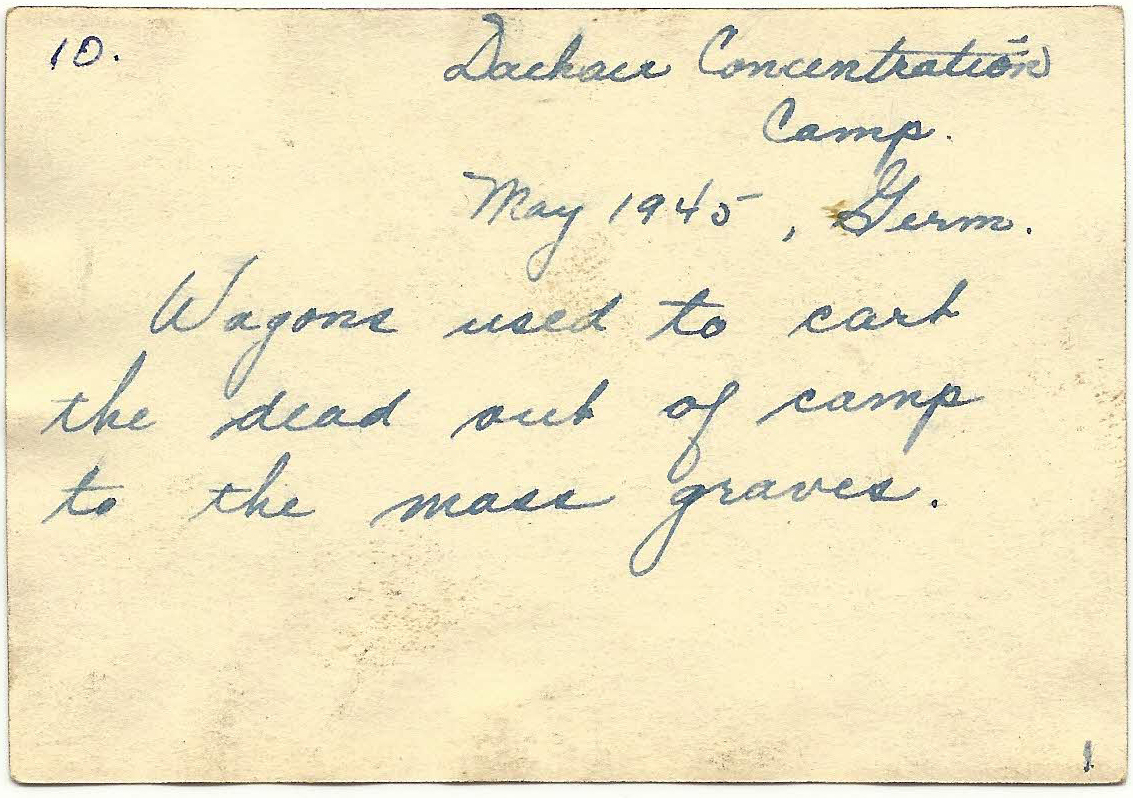 10.
Dachau Concentration
Camp.
May 1945, Germ.
Wagons used to cart
the dead out of camp
to the mass graves.